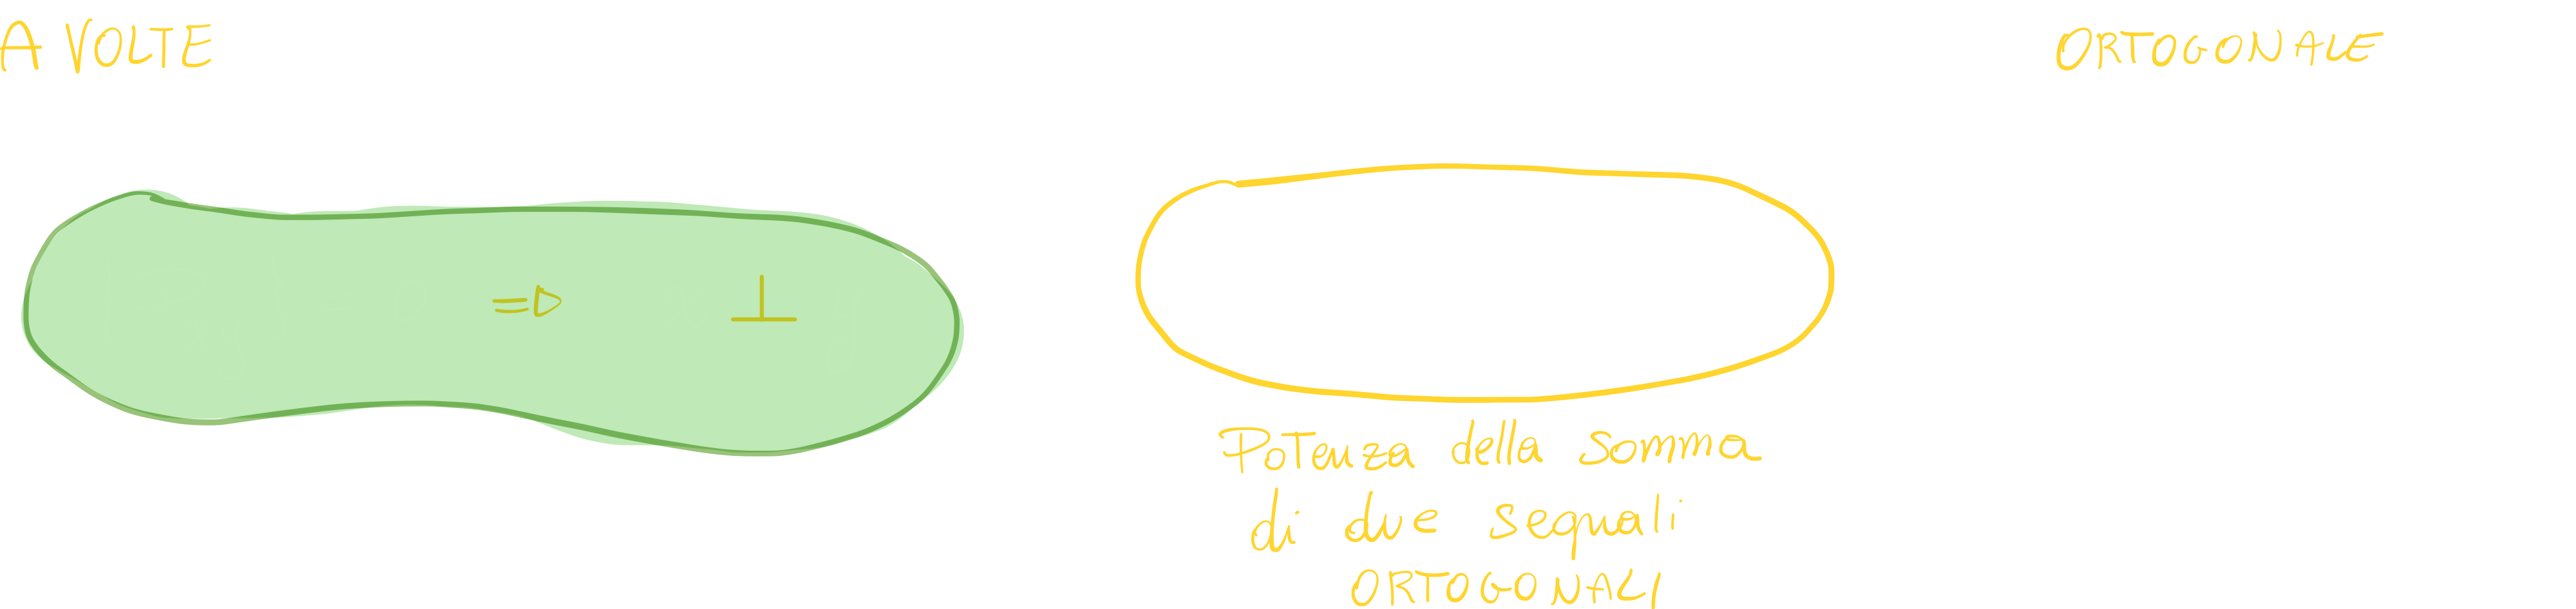 A VOLTE
ORTOGONALE
⇒ ⊥
Potenza della somma
di due segnali
ORTOGONALI